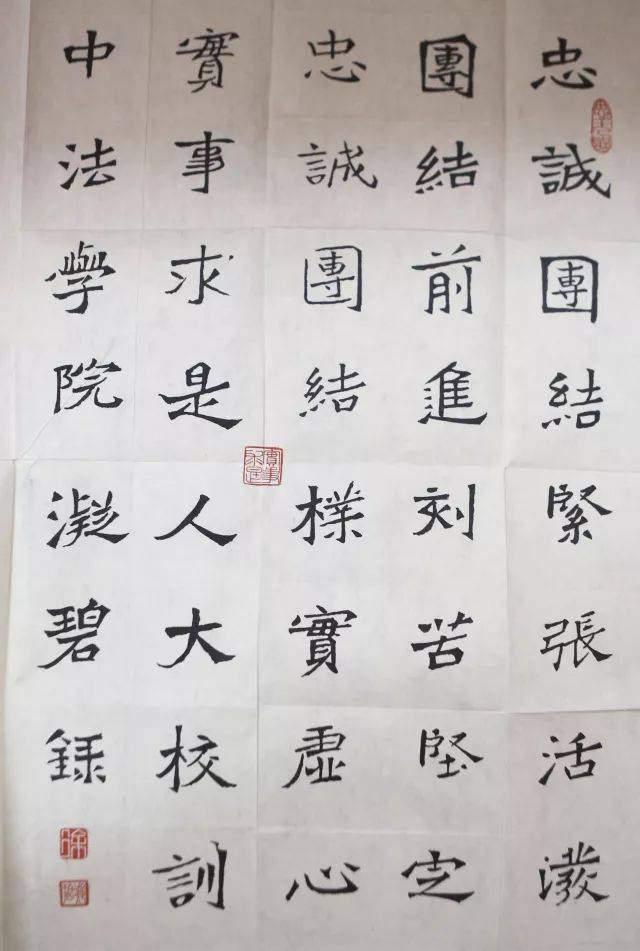 忠誠團結緊張活潑
團結前進刻苦堅定
忠誠團結樸實虛心
實事求是人大校訓
中法學院凝碧録
實事求是